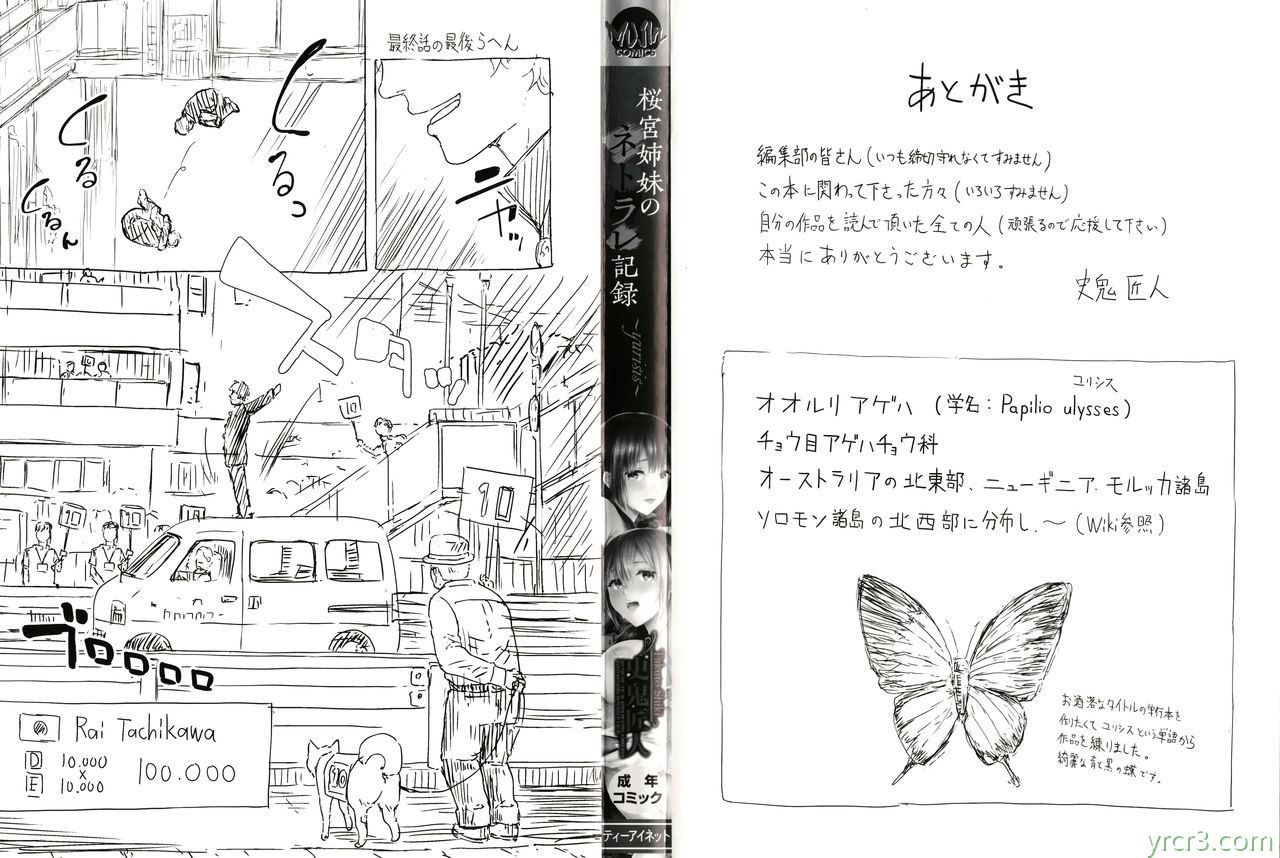 最終話の最後らへん
ニヤッ
くるっ
くる
くるん
10
10
10
10
10
ブロロロロ
Rai Tachikawa
D 10.000
×
E 10.000
100.000
10
COMICS
桜宮姉妹の
ネトラレ記録
～yurisis～
史鬼匠人
成年
コミック
ティーアイネット
あとがき
編集部の皆さん(いつも締切守れなくてすみません)
この本に関わって下さった方々(いろいろすみません)
自分の作品を読んで頂いた全ての人(頑張るので応援して下さい)
本当にありがとうございます。
史鬼 匠人
ユリシス
オオルリアゲハ (学名:Papilio ulysses)
チョウ目アゲハチョウ科
オーストラリアの北東部、ニューギニア、モルッカ諸島
ソロモン諸島の北西部に分布し、～(Wiki参照)
お洒落なタイトルの単行本を
作りたくてユリシスという単語から
作品を練りました。
綺麗な青と黒の蝶です。
yrcr3.com